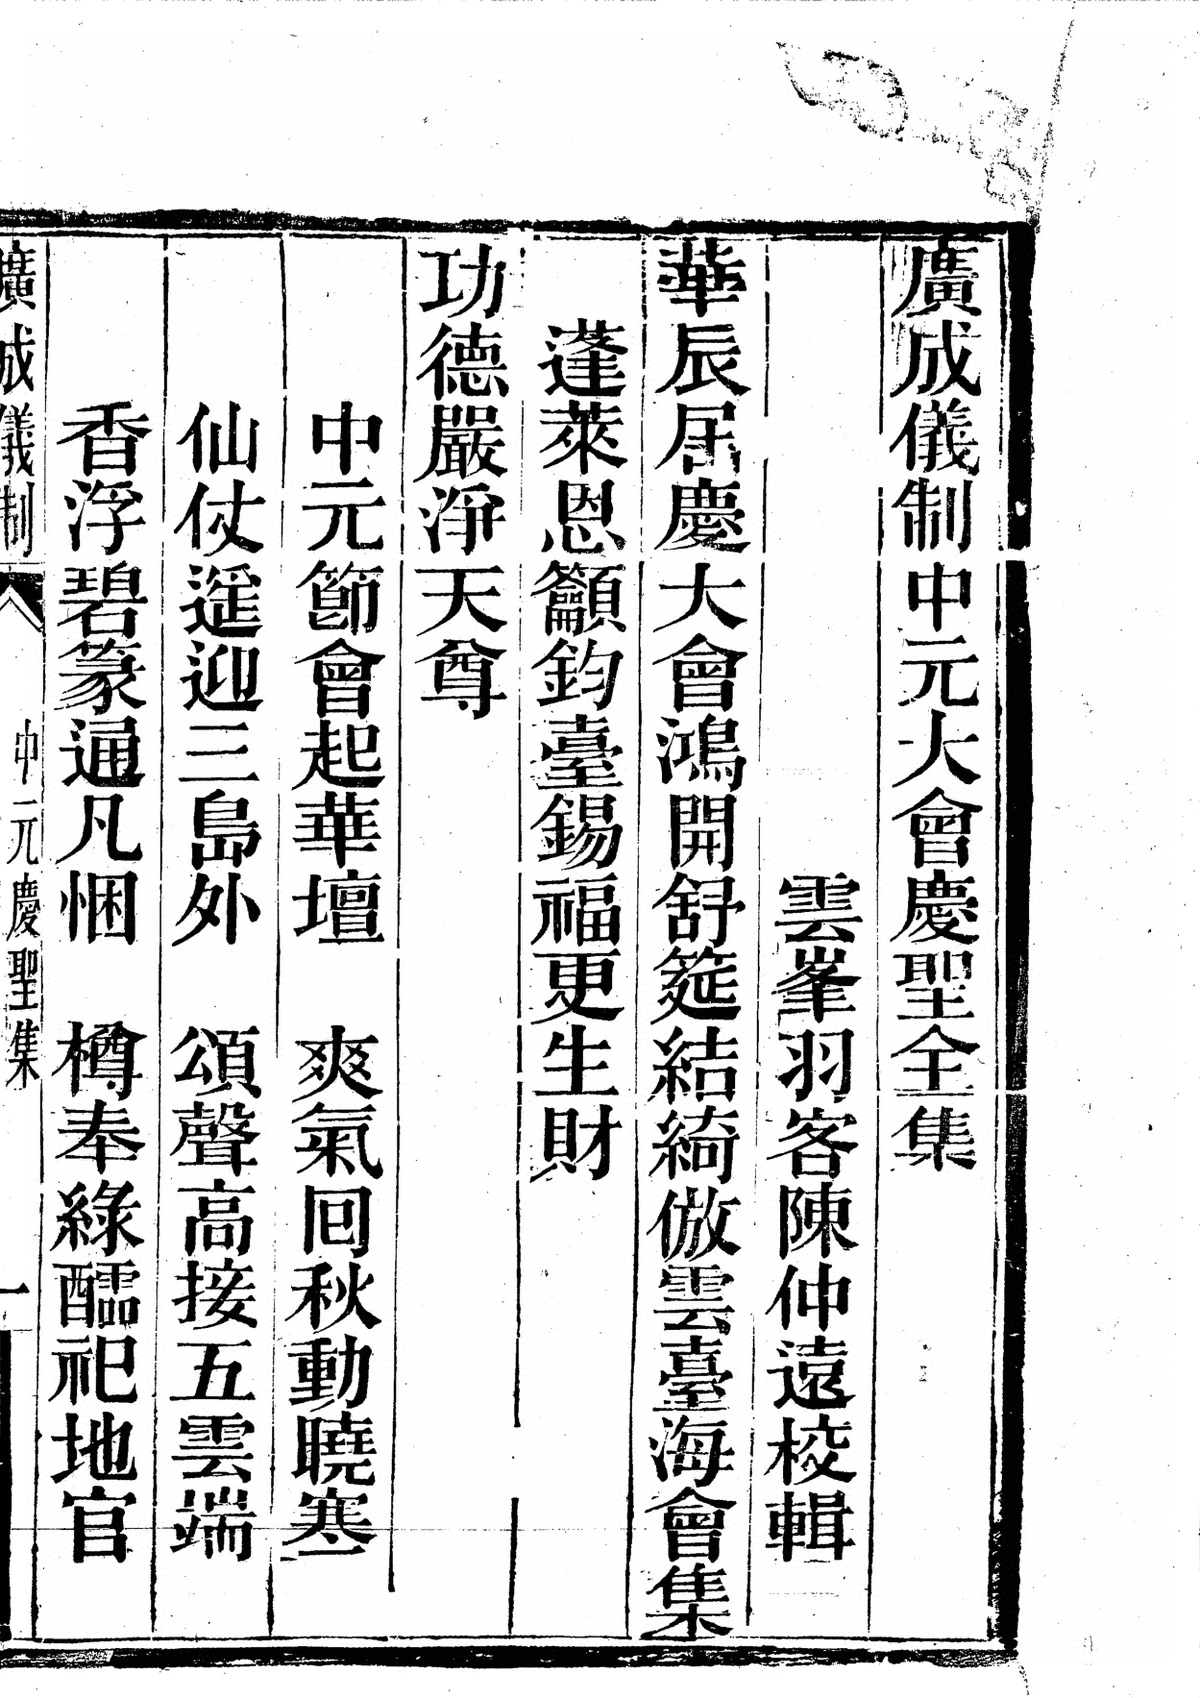 廣成儀制中元大會慶聖全集
雲峯羽客陳仲遠校輯
華辰居慶大會鴻開舒筵結綺倣雲臺海會集
蓬萊恩籲鈞臺錫福更生財
功德嚴淨天尊
中元節會起華壇　爽氣囘秋動曉寒
仙仗遙迎三島外　頌聲高接五雲端
香浮碧篆通凡悃　樽奉綠醽祀地官
廣成儀制　中元慶聖集　一